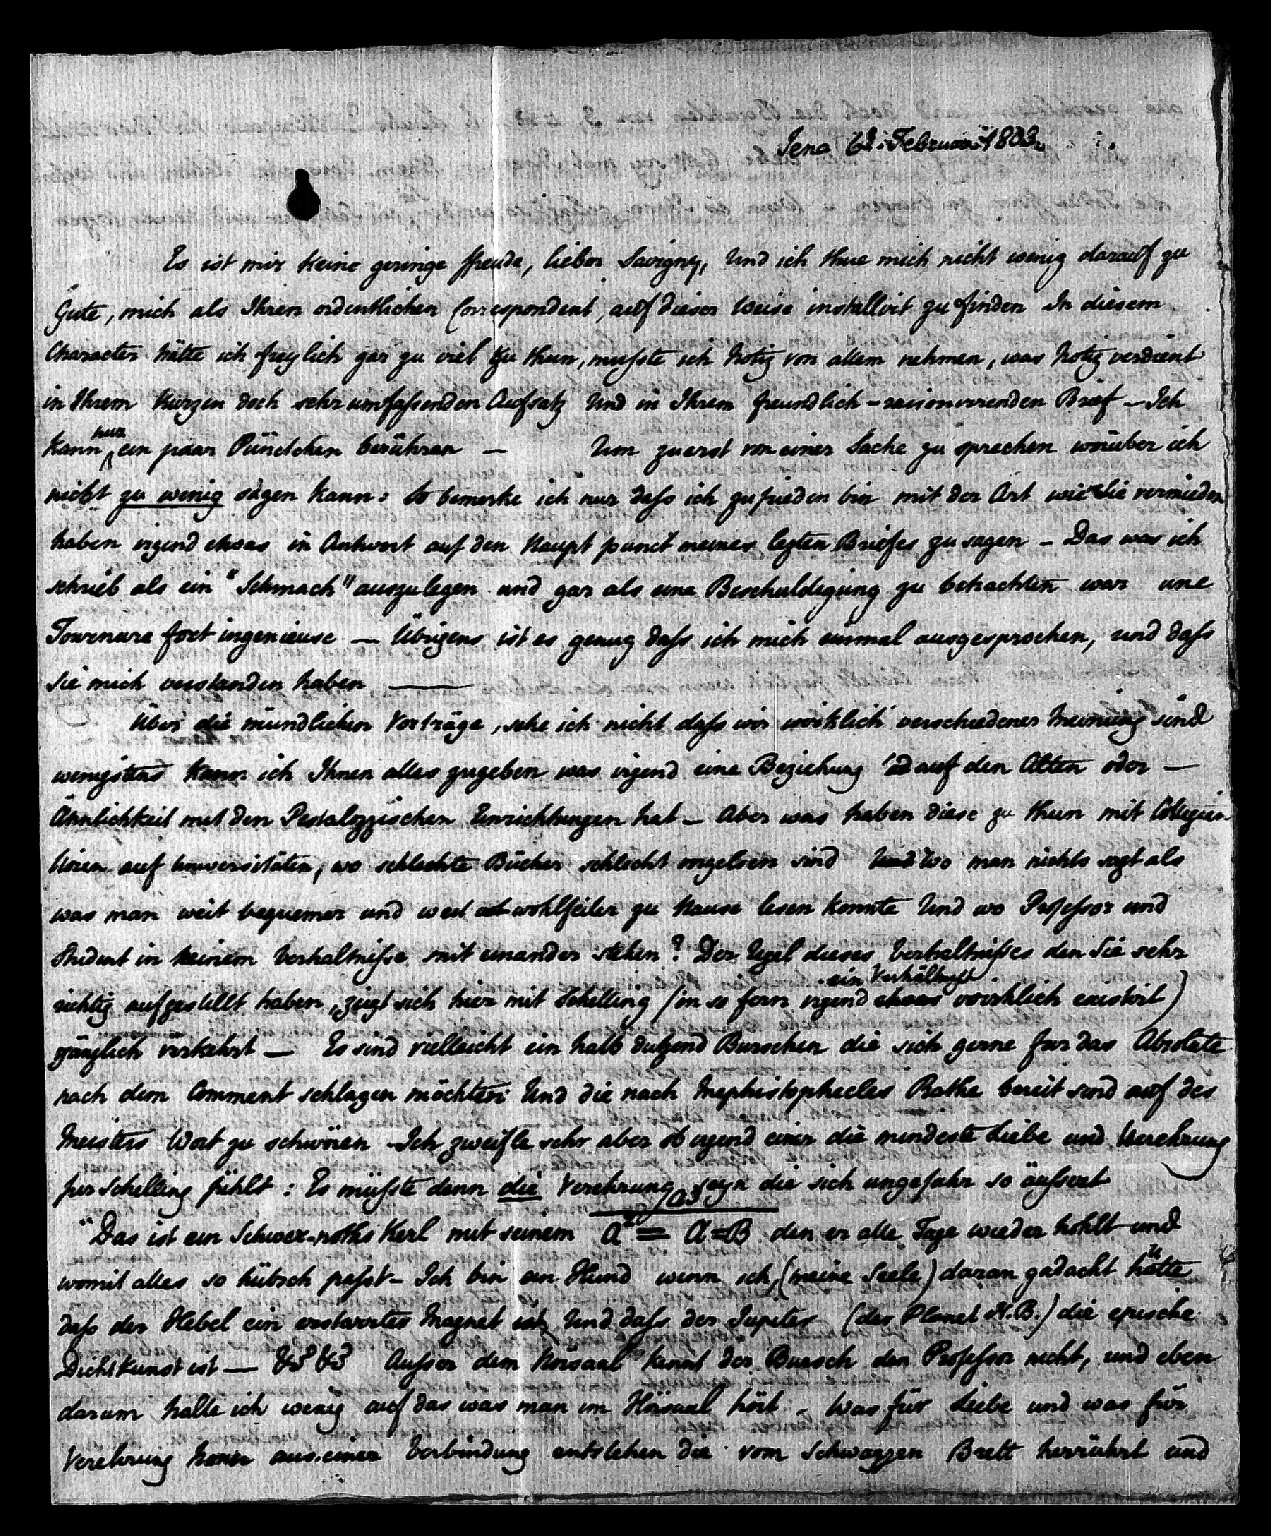 Jena 6t. Februari 1803.
Es ist mir keine geringe Freude, lieber Savigny, Und ich thue mich nicht wenig darauf zu
Gute, mich als Ihren ordentlichen Correspondent, auf dieser Weise installirt zu finden In diesem
Character hätte ich freylich gar zu viel zu thun, müsste ich Notiz von allem nehmen, was Notiz verdient
in Ihrem kurzen doch sehr umfassenden Aufsatz Und in Ihrem freundlich-raisonnirenden Brief – Ich
kann nur ein paar Pünctchen berühren — Um zuerst von einer Sache zu sprechen worüber ich
nicht zu wenig sagen kann: So bemerke ich nur dass ich zufrieden bin mit der Art wie Sie vermieden
haben irgend etwas in Antwort auf den Haupt punct meines lezten Briefes zu sagen – Das was ich
schrieb als ein "Schmach" auszulegen und gar als eine Beschuldigung zu betrachten war une
Tournure fort ingenieuse — Übrigens ist es genug dass ich mich einmal ausgesprochen, und dass
Sie mich verstanden haben ——
Über die mündlichen Vorträge, sehe ich nicht dass wir wirklich verschiedener Meinung sind
wenigstens kann ich Ihnen alles zugeben was irgend eine Beziehung auf den Alten oder —
Ähnlichkeit mit den Pestalozzischen Einrichtungen hat – Aber was haben diese zu thun mit Collegien
lesen auf Universitäten, wo schlechte Bücher schlecht vorgelesen sind Und wo man nichts sagt als
was man weit bequemer und weit wohlfeiler zu Hause lesen konnte Und wo Professor und
Student in keinem Verhältnisse mit einander stehen? Der Regel dieses Verhältnisses den Sie sehr
richtig aufgestellt haben, zeigt sich hier mit Schelling (in so fern irgend ein Verhältniss wirklich existirt)
gänzlich verkehrt — Es sind vielleicht ein halb dutzend Burschen die sich gerne für das Absolute
nach dem Comment schlagen möchten Und die nach Mephistopheles Rathe bereit sind auf des
Meisters Wort zu schwören – Ich zweifle sehr aber ob irgend einer die mindeste Liebe und Verehrung
für Schelling fühlt: Es müsste denn die Verehrung seyn die sich ungefähr so äussert
"Das ist ein Schwer-noths Kerl mit seinem A² = A=B den er alle Tage wieder hohlt und
womit alles so hübsch passt – Ich bin ein Hund wenn ich (meine Seele) daran gedacht hätte
dass der Hebel ein erstarrter Magnet ist, Und dass der Jupiter (der Planet N.B.) die epische
Dichtkunst ist — &c &c Ausser dem Hörsaal kennt der Bursch den Professor nicht, und eben
darum halte ich wenig auf das was man im Hörsaal hört – Was für Liebe und was für
Verehrung kann aus einer Verbindung entstehen die vom schwarzen Brett herrührt und